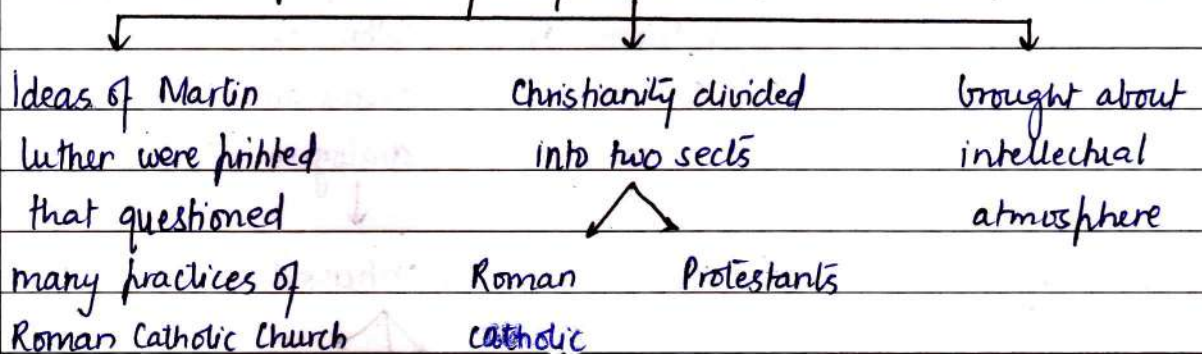 Ideas of Martin
luther were printed
that questioned
many practices of
Roman Catholic Church
Christianity divided
into two sects
Roman
catholic
Protestants
brought about
intellectual
atmosphere